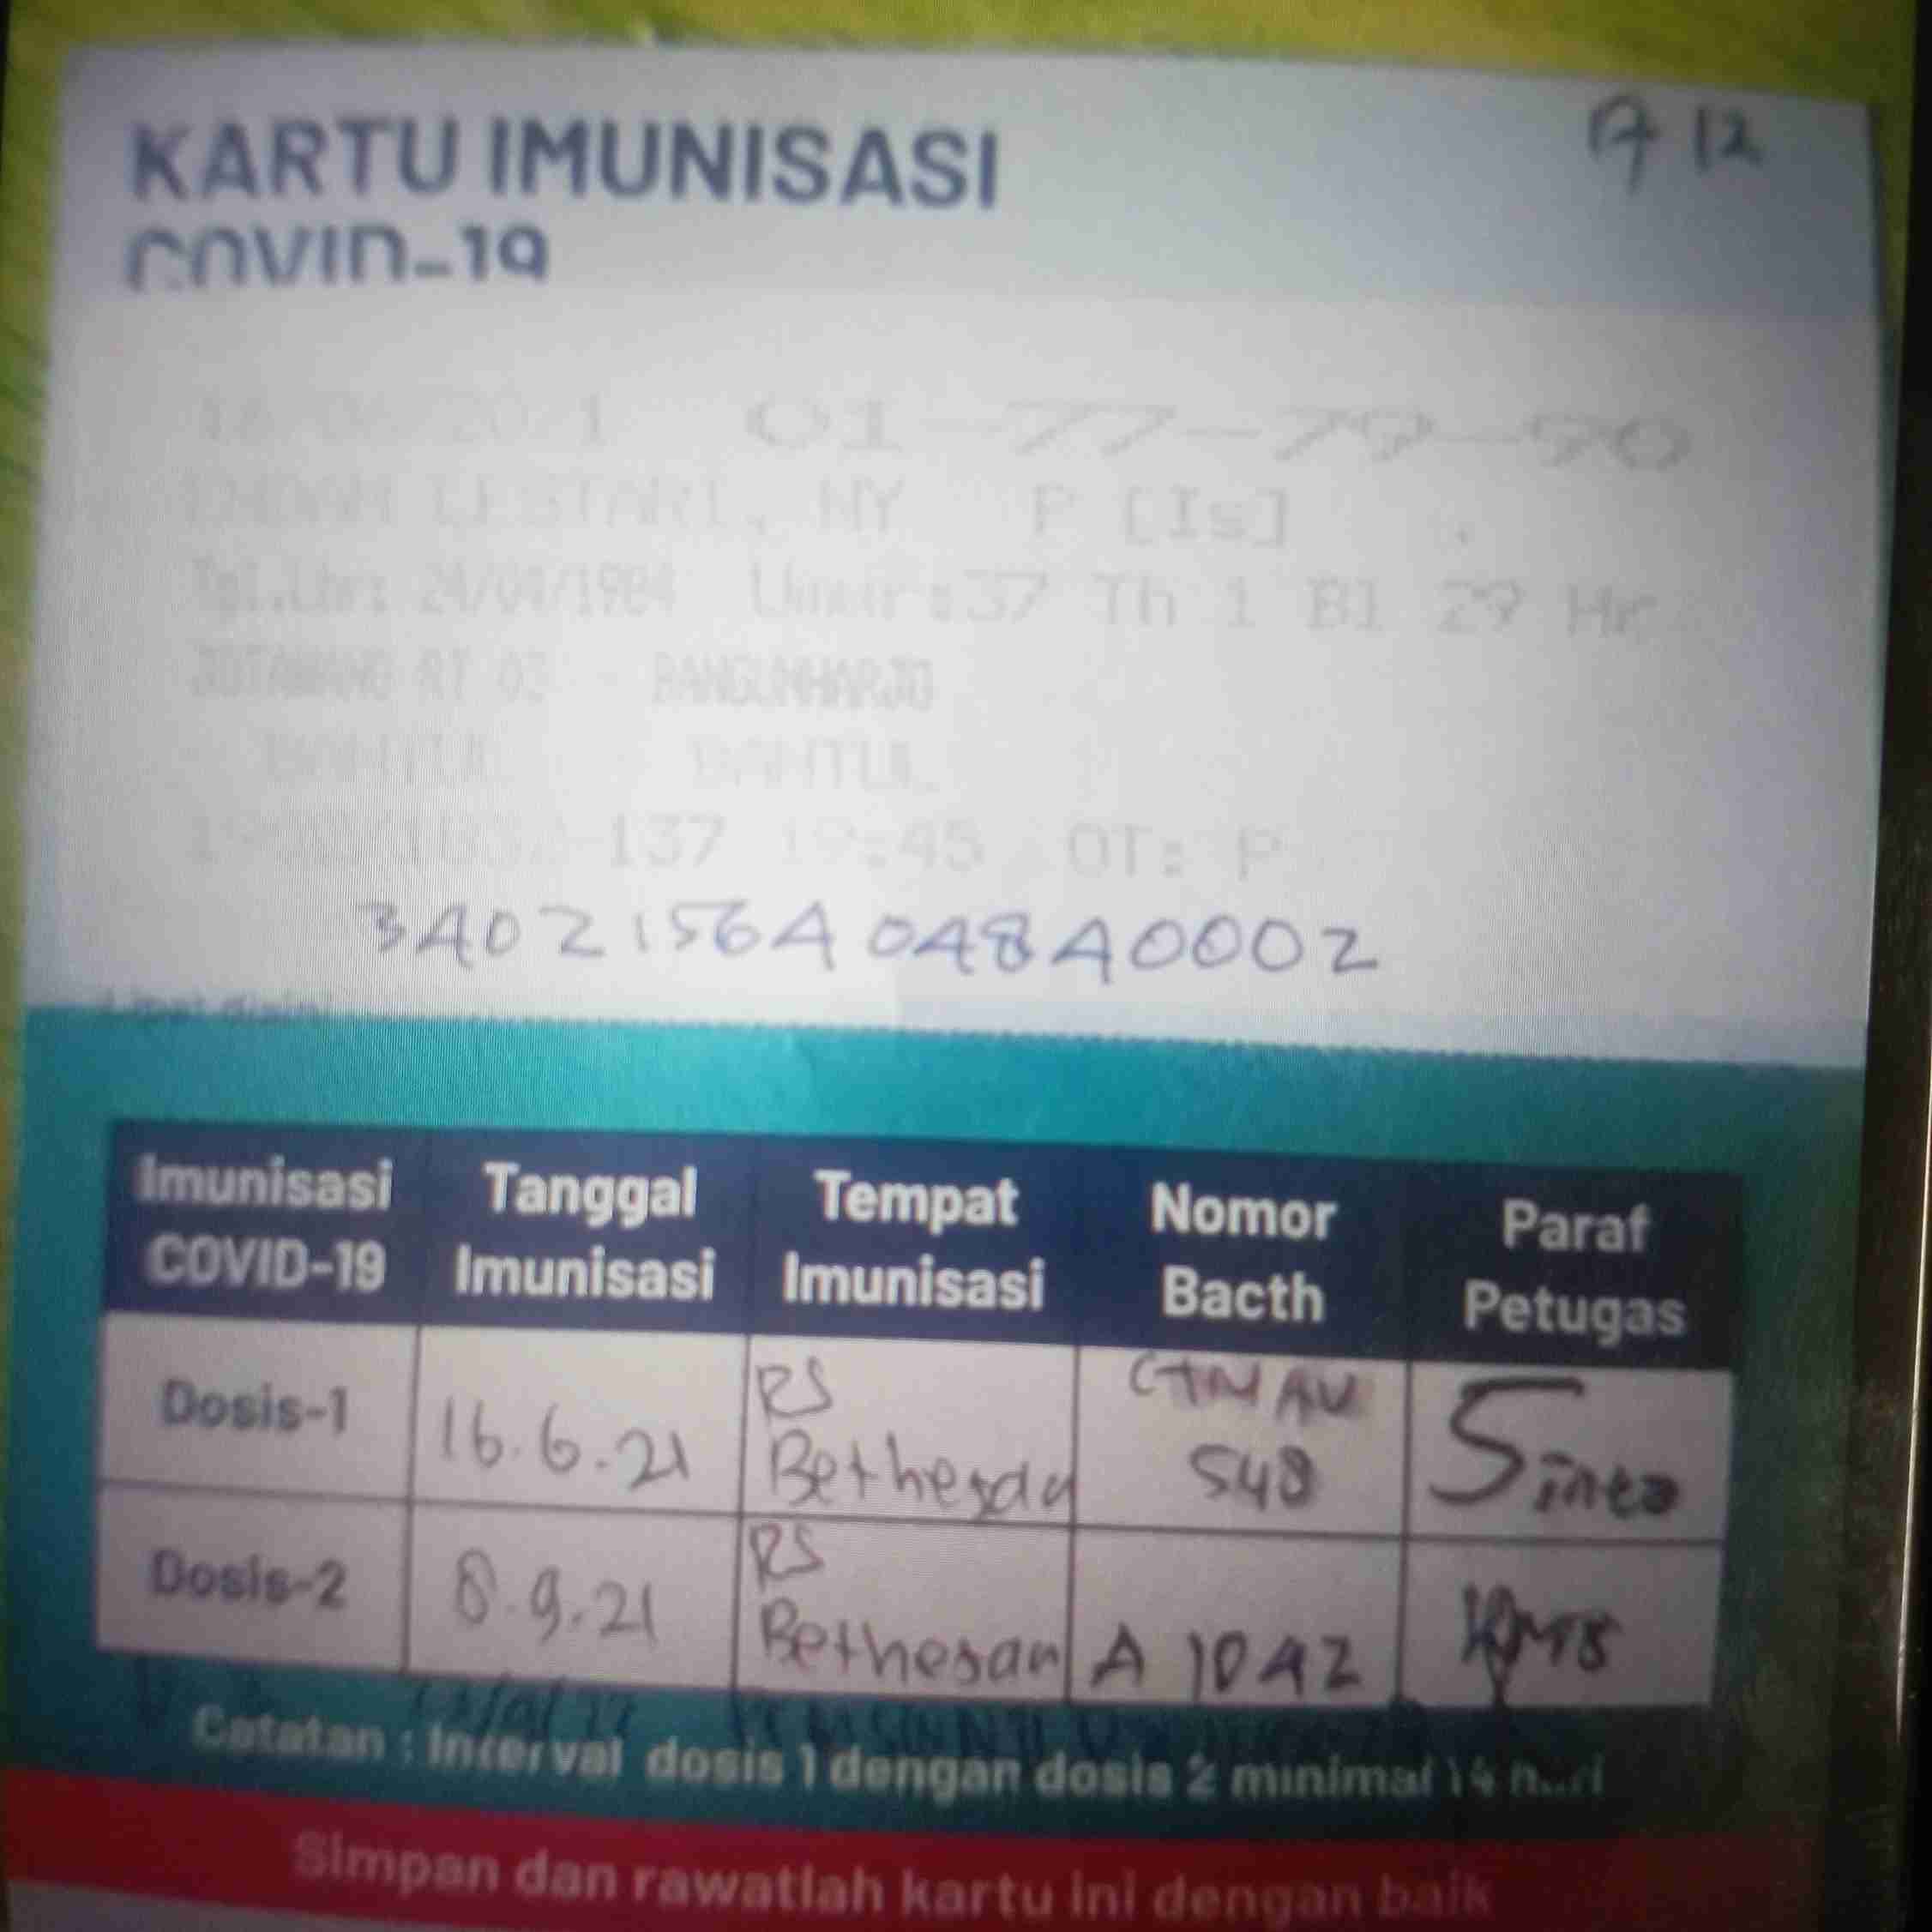 KARTU IMUNISASI
COVID-19
A 12
01-77-79-90
LESTARI, NY P [Is]
Tgl.Lhr: 24/04/1984 Umur:37 Th 1 Bl 29 Hr
RT 03 BANGUNHARJO
BANTUL BANTUL
137 19:45 OT: P
3402156404840002
Lipat disini
Imunisasi COVID-19 Tanggal Imunisasi Tempat Imunisasi Nomor Bacth Paraf Petugas
Dosis-1 16.6.21 RS Bethesda CTNAV 548
Dosis-2 8.9.21 RS Bethesda A 1042
Catatan : Interval dosis 1 dengan dosis 2 minimal 14 hari
Simpan dan rawatlah kartu ini dengan baik